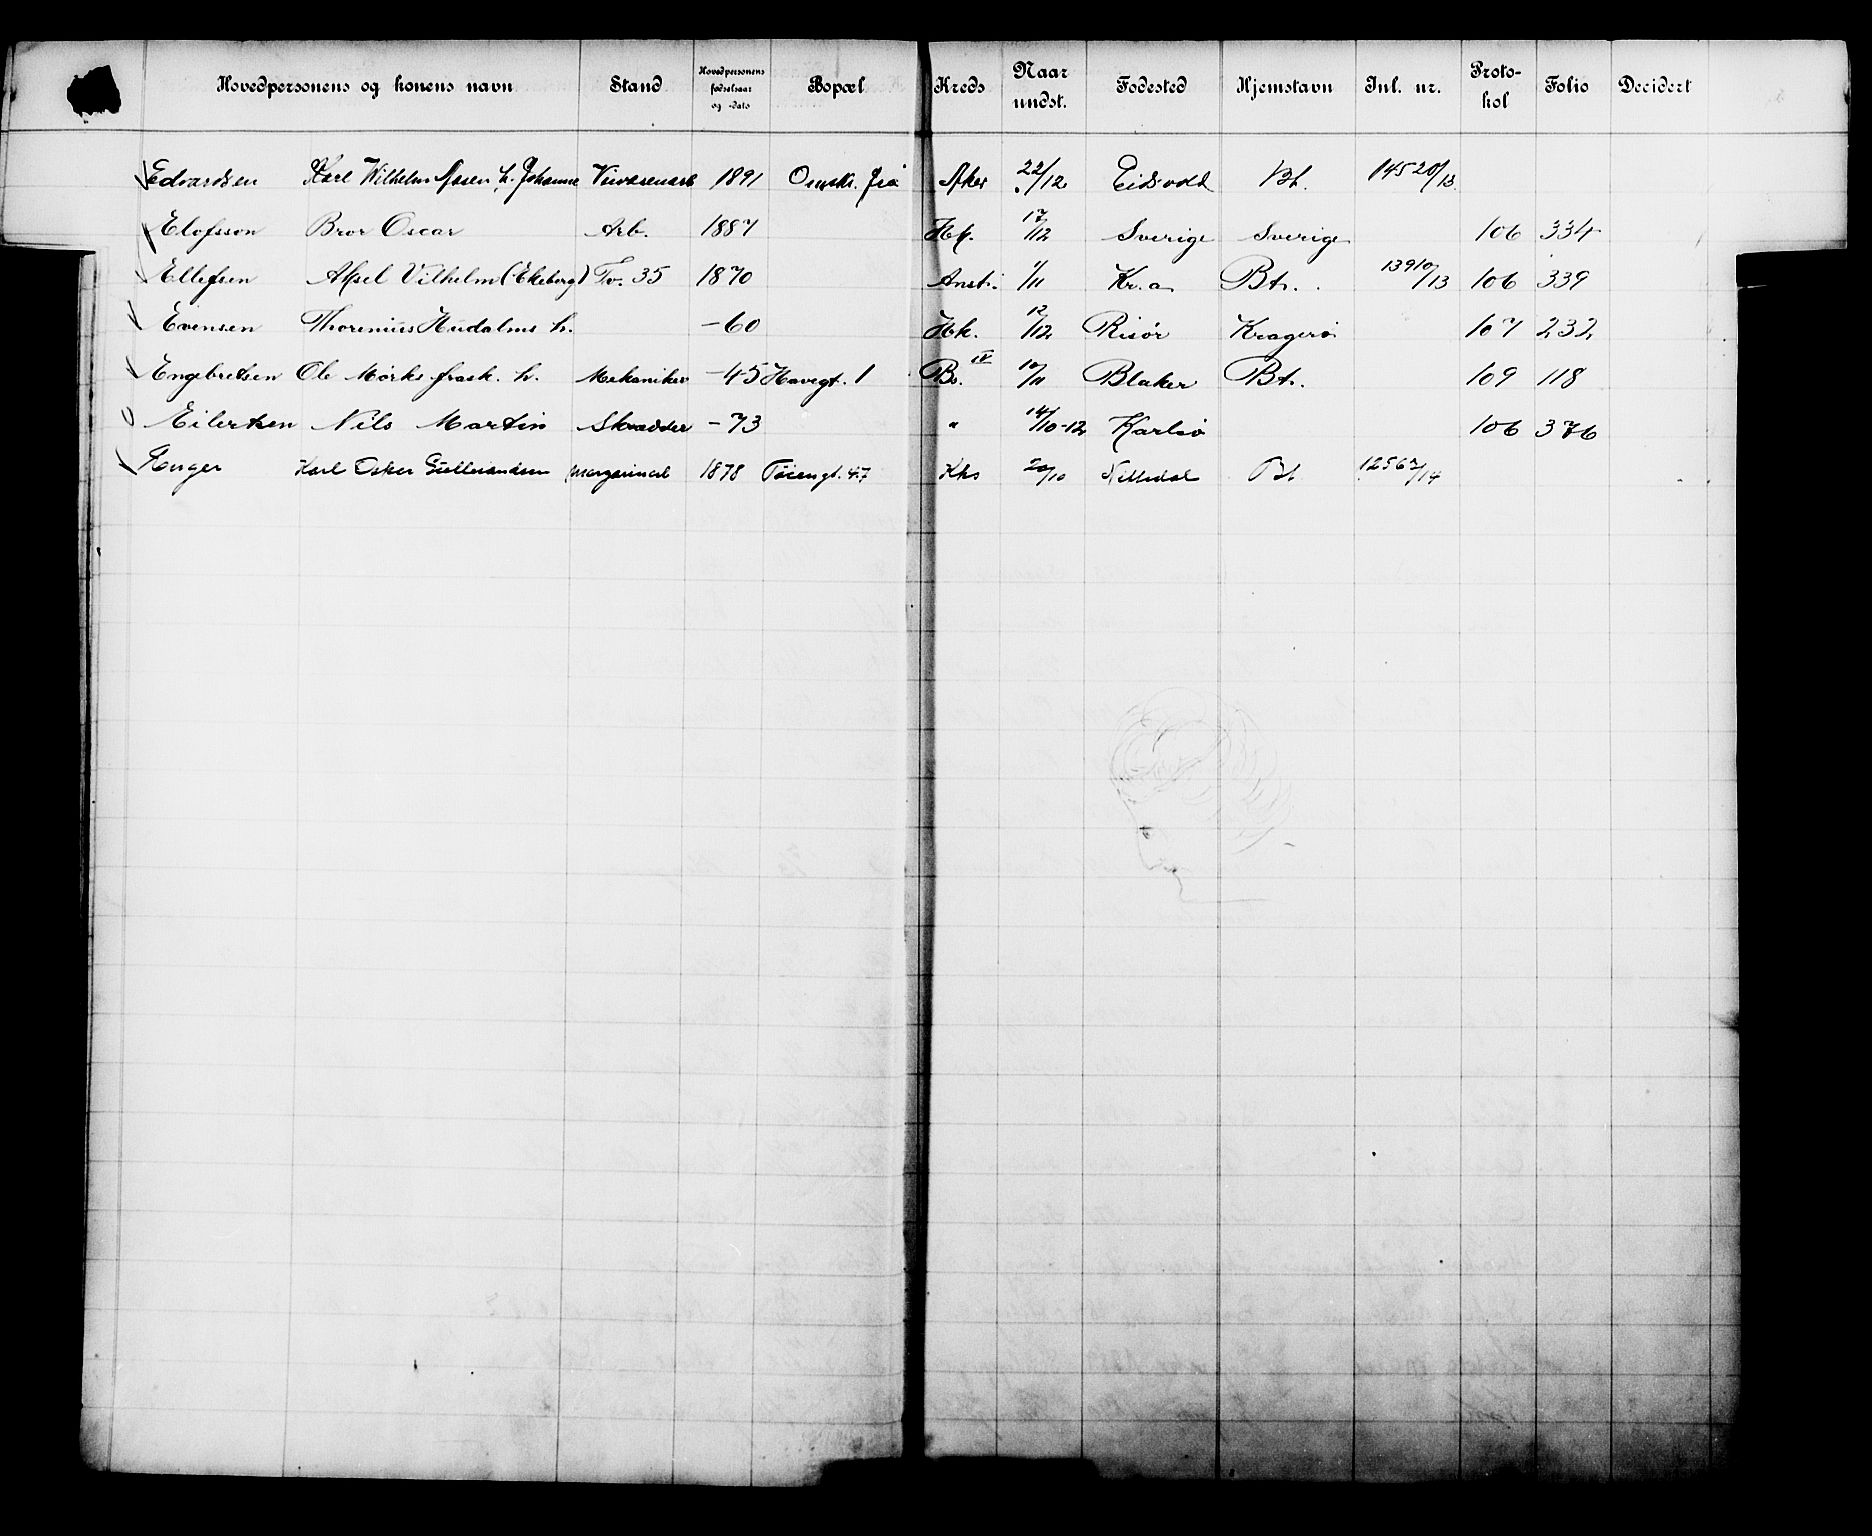 Hovedpersonens og konens navn Stand Hovedpersonens fødselsaar og -dato Bopæl Kreds Naar undst. Fødested Hjemstavn Jnl. nr. Protokol Folio Decidert
Edvardsen Karl Wilhelm Aasen h. Johanne 1891 Omsk. fra Aker 22/12 Eidsvold Bt. 145 20/13
Elofsson Bror Oscar Arb. 1887 Hk. 17/12 Sverige Sverige 106 334
Ellefsen Aksel Vilhelm (Ekeberg) Tv. 35 1870 Anst. 1/11 Kr.a Bt. 139 10/13 106 339
Evensen Thorenius Hudalms h. -60 Hk. 12/12 Risør Kragerø 107 232
Engebretsen Ole Mørks frask. h. Mekaniker -45 Havegt. 1 Bs. IV 10/11 Blaker Bt. 109 118
Eilertsen Nils Martin Skrædder -73 " 14/10-12 Karlsø 106 376
Enger Karl Oskar Gulbrandsen Margarinarb 1878 Tøiengt. 47 Kks 20/10 Nittedal Bt 1256 2/14